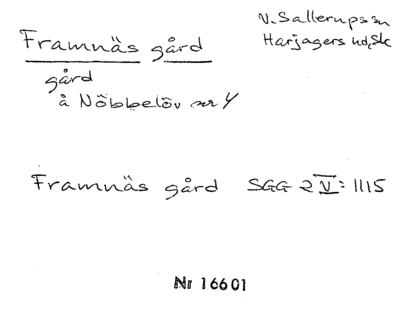 V. Sallerups sn
Harjagers hd, Sk
Framnäs gård
gård
å Nöbbelöv nr 4
Framnäs gård SGG 2 V: 1115
Nr 16601